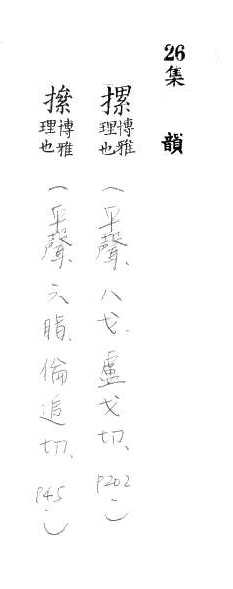 26集 韻
摞 博雅理也 （平聲、八戈、盧戈切、P202.）
摖 博雅理也 （平聲、六脂、倫追切、P45.）